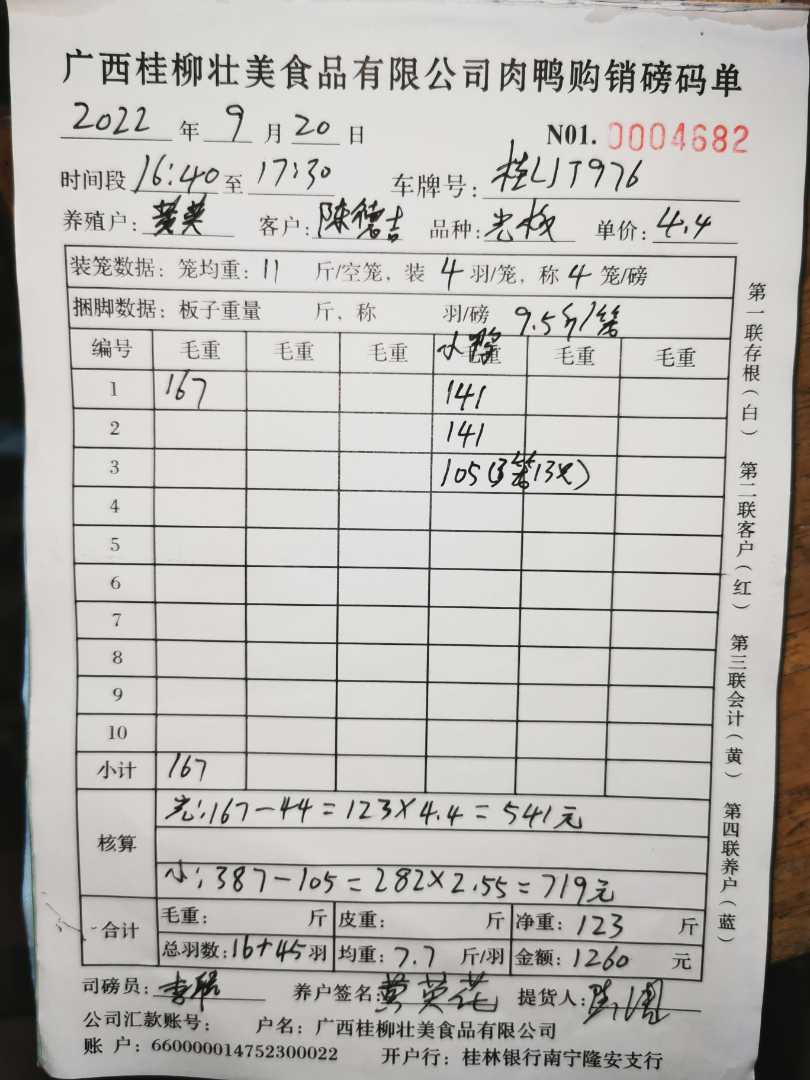 广西桂柳壮美食品有限公司肉鸭购销磅码单
2022 年 9 月 20 日 N01. 0004682
时间段 16:40 至 17:30 车牌号: 桂LJT976
养殖户: 黄英 客户: 陈德吉 品种: 光板 单价: 4.4
装笼数据: 笼均重: 11 斤/空笼, 装 4 羽/笼, 称 4 笼/磅
捆脚数据: 板子重量 斤, 称 羽/磅 9.5斤/笼
编号 毛重 毛重 毛重 小鸭 毛重 毛重 毛重
1 167 141
2 141
3 105(3笼13只)
4
5
6
7
8
9
10
小计 167
核算 光:167-44=123×4.4=541元
小:387-105=282×2.55=719元
合计 毛重: 斤 皮重: 斤 净重: 123 斤
总羽数:16+45羽 均重: 7.7 斤/羽 金额: 1260 元
司磅员: 养户签名: 黄英花 提货人:
公司汇款账号: 户名: 广西桂柳壮美食品有限公司
账 户: 660000014752300022 开户行: 桂林银行南宁隆安支行
第一联存根(白) 第二联客户(红) 第三联会计(黄) 第四联养户(蓝)